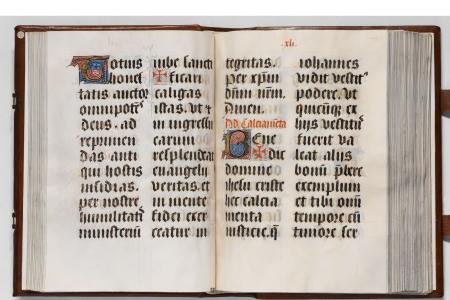 xli.
Totius
hones
tatis auctor
omnipotēs
deus. ad
reprimen
das anti
qui hostis
insidias.
per nostre
humilitatis
ministeriū
iube sancti
ficari
caligas
istas. ut
in ingressu
earum
resplendeat
euangelij
veritas. et
in mente
fidei exer
ceatur in
tegritas.
per xpūm
dūm nūm.
Amen.
Ad Calciamēta
Bene
dic
domine
ihesu criste
hec calcia
menta
iusticie. q̄
iohannes
vidit vestitꝰ
podere. ut
quicūqꝫ ex
hijs vestitꝰ
fuerit va
leat alijs
bonū p̄bere
exemplum
et tibi omī
tempore cū
timore ser